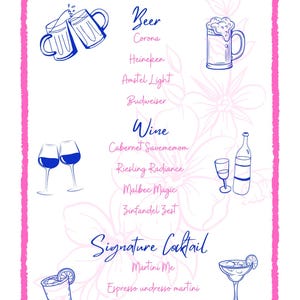 Beer
Corona
Heineken
Amstel Light
Budweiser
Wine
Cabernet Savemenom
Riesling Radiance
Malbec Magic
Zinfandel Zest
Signature Cocktail
Martini Me
Espresso undresso martini